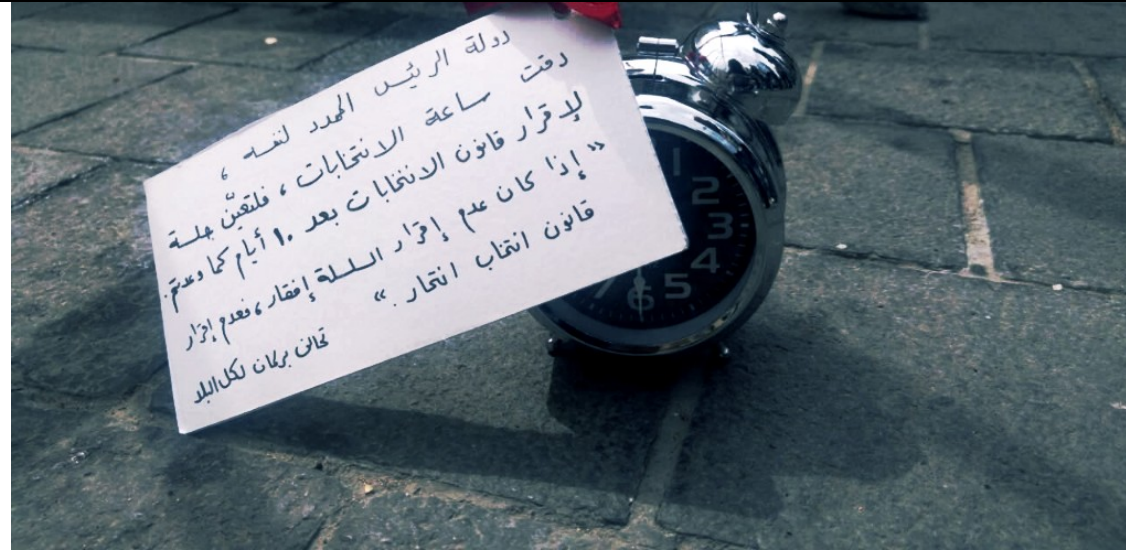 دولة الرئيس الممدد لنفسه ،
دقت ساعة الانتخابات ، فلتعيّن جلسة
لإقرار قانون الانتخابات بعد ١٠ أيام كما وعدتم.
"إذا كان عدم إقرار السلسلة إفقار ، فعدم إقرار
قانون انتخاب انتحار ."
تحالف برلمان لكل البلد
1
2
3
4
5
6
7